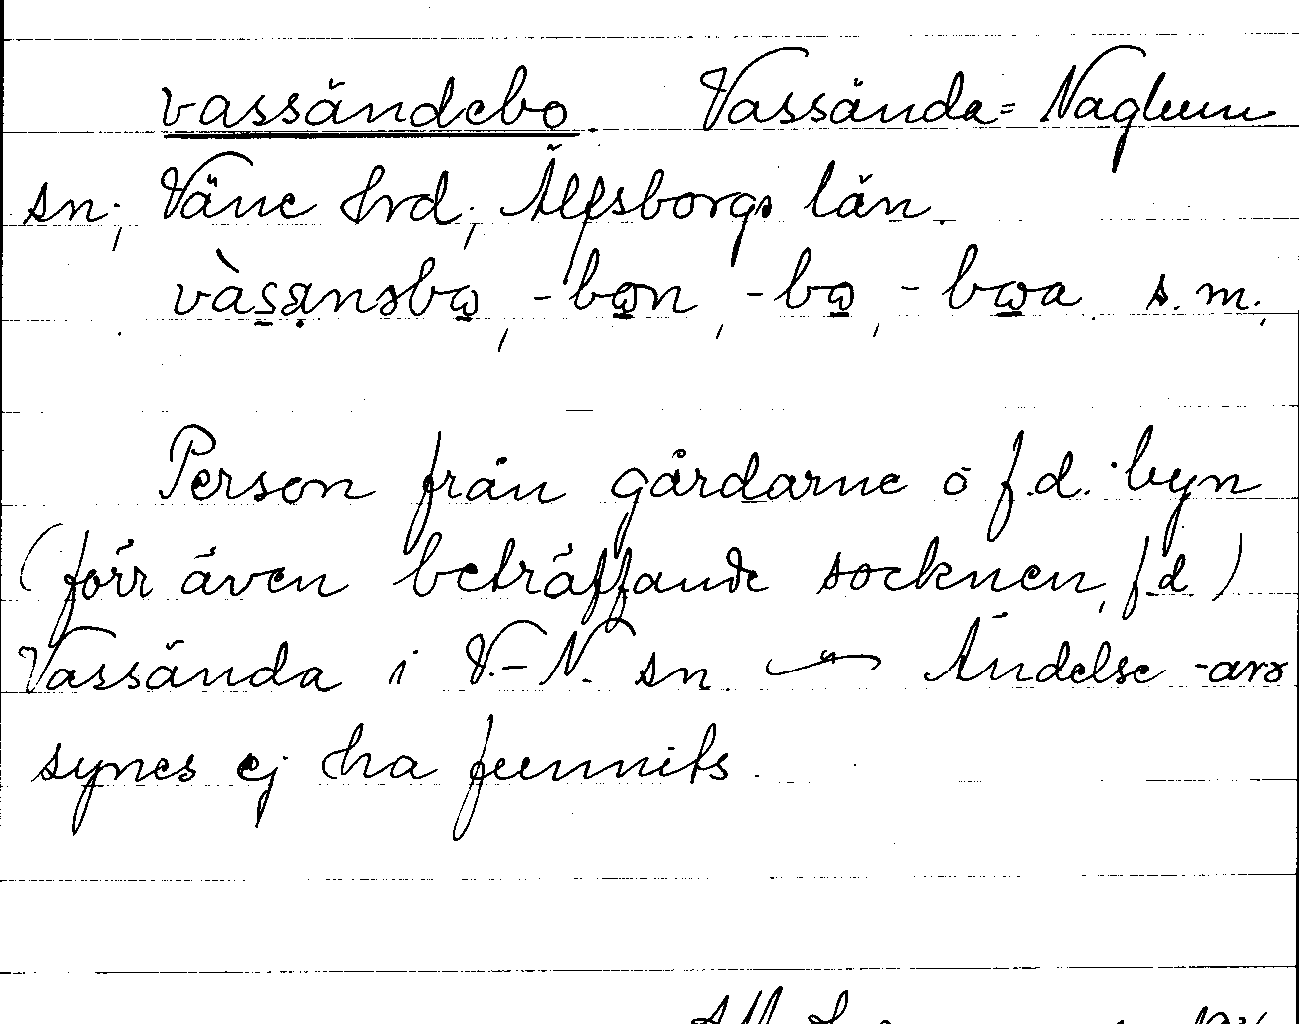 vassändebo. Vassända-Naglum
sn; Väne hrd; Älfsborgs län.
vàsa̤nsbo̤, -bo̤n, -bo̤, -bo̤a. s. m.;
Person från gårdarne o f.d. byn
(förr även beträffande socknen, f.d.)
Vassända i V.-N. sn. Ändelse -arə
synes ej ha funnits.